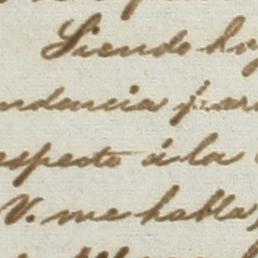 Siendo hoy
ndencia para
especto á la
V. me habla,